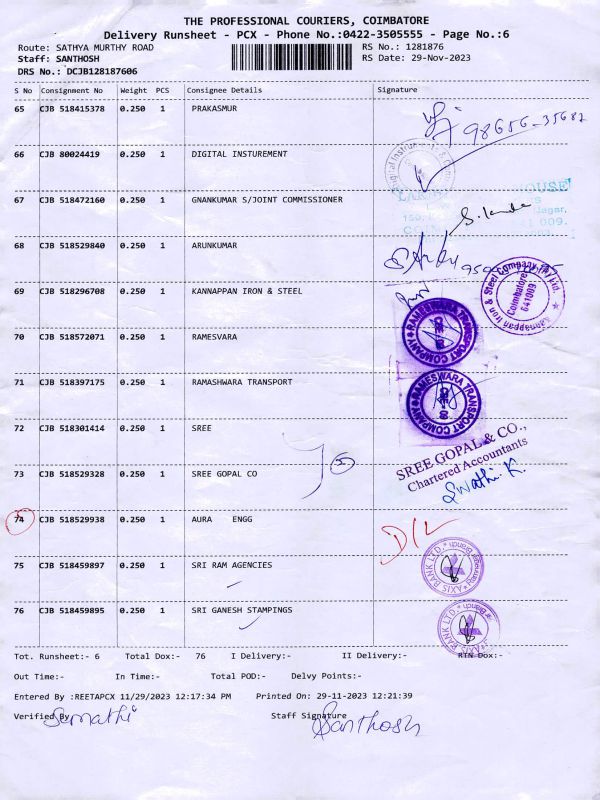 THE PROFESSIONAL COURIERS, COIMBATORE
Delivery Runsheet - PCX - Phone No.:0422-3505555 - Page No.:6
Route: SATHYA MURTHY ROAD RS No.: 1281876
Staff: SANTHOSH RS Date: 29-Nov-2023
DRS No.: DCJB128187606
S No Consignment No Weight PCS Consignee Details Signature
65 CJB 518415378 0.250 1 PRAKASMUR
98656-35682
66 CJB 80024419 0.250 1 DIGITAL INSTUREMENT
67 CJB 518472160 0.250 1 GNANKUMAR S/JOINT COMMISSIONER
68 CJB 518529840 0.250 1 ARUNKUMAR
69 CJB 518296708 0.250 1 KANNAPPAN IRON & STEEL
Kannappan Iron & Steel Company (P) Ltd.
Coimbatore
641009
70 CJB 518572071 0.250 1 RAMESVARA
RAMESWARA TRANSPORT COMPANY
71 CJB 518397175 0.250 1 RAMASHWARA TRANSPORT
RAMESWARA TRANSPORT COMPANY
72 CJB 518301414 0.250 1 SREE
SREE GOPAL & CO.,
Chartered Accountants
73 CJB 518529328 0.250 1 SREE GOPAL CO
Swathi.K
74 CJB 518529938 0.250 1 AURA ENGG
D/L
75 CJB 518459897 0.250 1 SRI RAM AGENCIES
AXIS BANK LTD.
76 CJB 518459895 0.250 1 SRI GANESH STAMPINGS
AXIS BANK LTD.
Tot. Runsheet:- 6 Total Dox:- 76 I Delivery:- II Delivery:- RTN Dox:-
Out Time:- In Time:- Total POD:- Delvy Points:-
Entered By :REETAPCX 11/29/2023 12:17:34 PM Printed On: 29-11-2023 12:21:39
Verified By Staff Signature
Santhosh